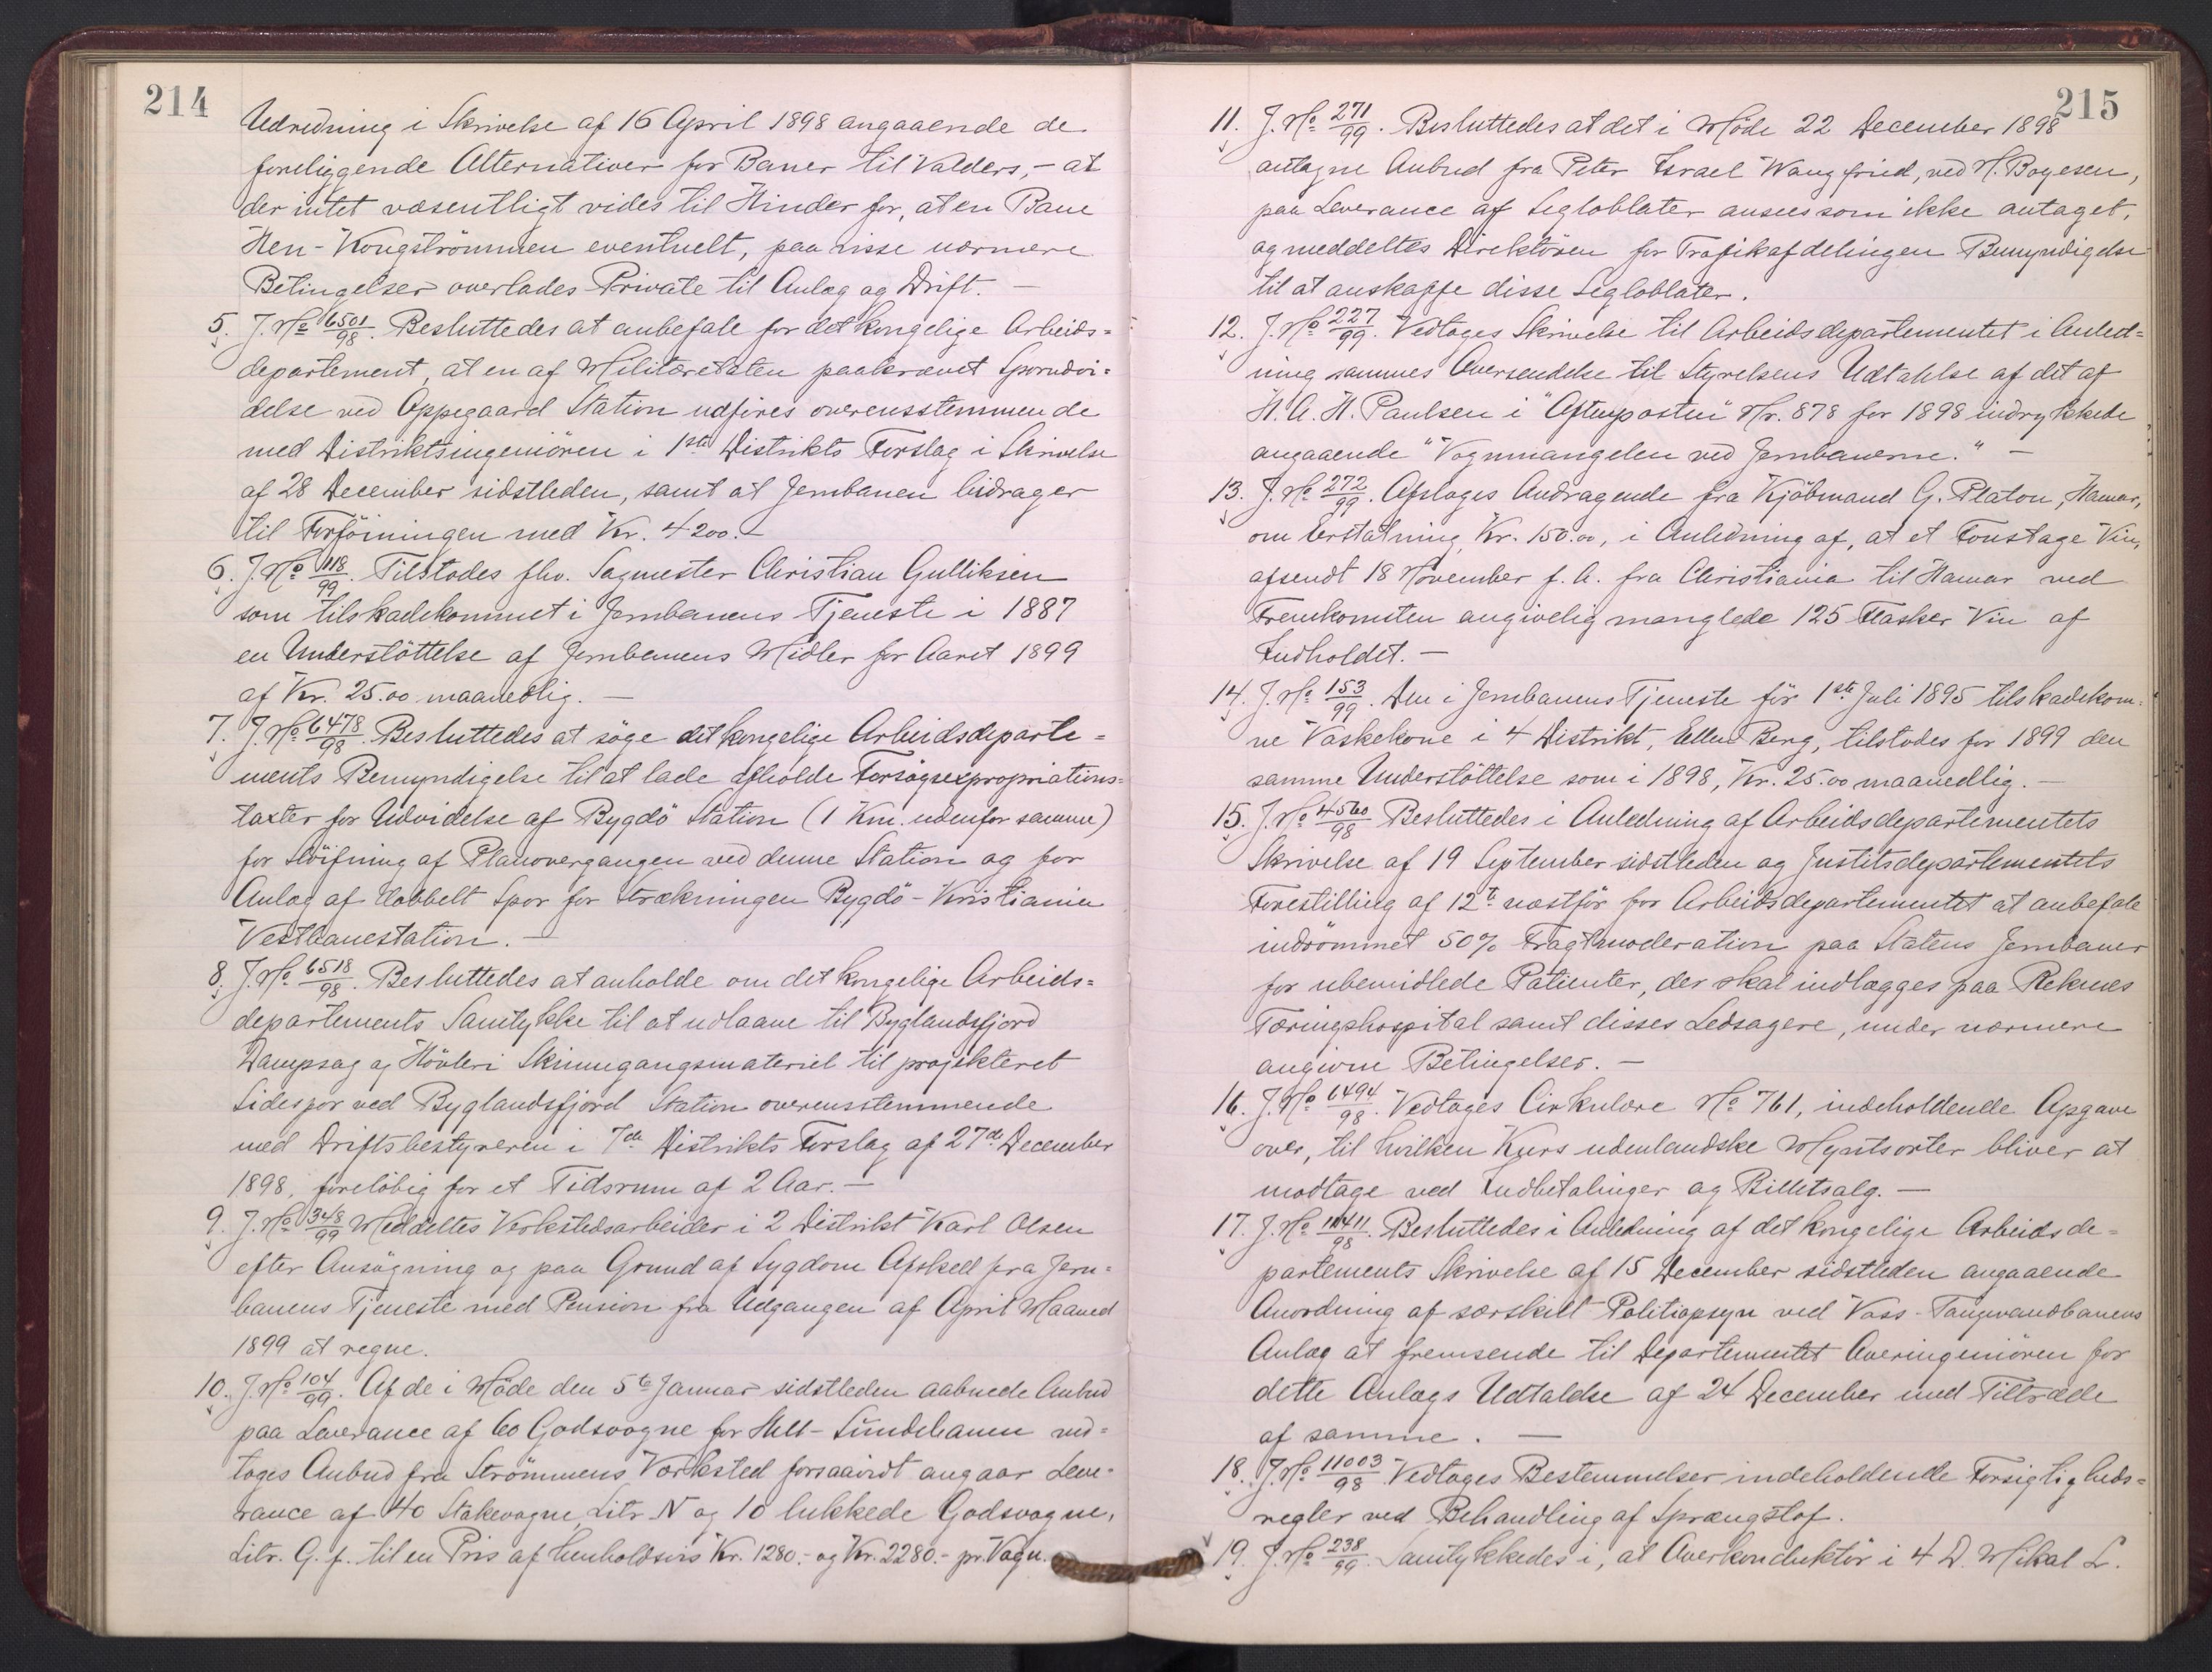 214
Udredning i Skrivelse af 16 April 1898 angaaende de
foreliggende Alternativer for Baner til Valders, - at
der intet væsentligt vides til Hinder for, at en Bane
Hen - Kongströmmen eventuelt, paa visse nærmere
Betingelser overlades Private til Anlæg og Drift. -
5. J. No 6501/98. Besluttedes at anbefale for det kongelige Arbeids=
departement, at en af Militæretaten paakrævet Sporudvi=
delse ved Oppegaard Station udføres overensstemmende
med Distriktsingeniören i 1ste Distrikts Forslag i Skrivelse
af 28 December sidstleden, samt at Jernbanen bidrager
til Forföiningen med Kr. 4200.-
6. J. No 118/99. Tilstodes fhv. Sagmester Christian Gulliksen
som tilskadekommet i Jernbanens Tjeneste i 1887
en Understöttelse af Jernbanens Midler for Aaret 1899
af Kr. 25.00 maanedlig. -
7. J. No 6478/98. Besluttedes at söge det kongelige Arbeidsdeparte=
ments Bemyndigelse til at lade afholde Forsøgsexpropriations=
taxter for Udvidelse af Bygdö Station (1 Km. udenfor samme)
for Slöifning af Planovergangen ved denne Station og for
Anlæg af dobbelt Spor for Strækningen Bygdö - Kristiania
Vestbanestation. -
8. J. No 6518/98. Besluttedes at anholde om det kongelige Arbeids=
departements Samtykke til at udlaane til Byglandsfjord
Dampsag og Hövleri Skinnegangsmateriel til projekteret
Sidespor ved Byglandsfjord Station overensstemmende
med Driftsbestyreren i 7de Distrikts Forslag af 27de December
1898, foreløbig for et Tidsrum af 2 Aar. -
9. J. No 348/99 Meddeltes Verkstedsarbeider i 2 Distrikt Karl Olsen
efter Ansögning og paa Grund af Sygdom Afsked fra Jern=
banens Tjeneste med Pension fra Udgangen af April Maaned
1899 at regne.
10. J. No 104/99. Af de i Møde den 5te Januar sidstleden aabnede Anbud
paa Leverance af 60 Godsvogne for Hell - Sundebanen ved=
toges Anbud fra Strömmens Værksted forsaavidt angaar Leve=
rance af 40 Stakevogne, Litr. N og 10 lukkede Godsvogne,
Litr. G. f. til en Pris af henholdsvis Kr. 1280.- og Kr. 2280.- pr. Vogn.
215
11. J. No 271/99. Besluttedes at det i Møde 22 December 1898
antagne Anbud fra Peter Israel Wangfried, ved N. Boyesen,
paa Leverance af Segloblater ansees som ikke antaget,
og meddeltes Direktören for Trafikafdelingen Bemyndigelse
til at anskaffe disse Segloblater.
12. J. No 227/99. Vedtoges Skrivelse til Arbeidsdepartementet i Anled=
ning sammes Oversendelse til Styrelsens Udtalelse af det af
H. A. H. Paulsen i "Aftenposten" Nr. 878 for 1898 indrykkede
angaaende "Vognmangelen ved Jernbanerne." -
13. J. No 272/99. Afsloges Andragende fra Kjöbmand G. Platou, Hamar,
om Erstatning, Kr. 150.00, i Anledning af, at et Foustage Vin,
afsendt 18 November f. A. fra Christiania til Hamar ved
Fremkomsten angivelig manglede 125 Flasker Vin af
Indholdet. -
14. J. No 153/99. Den i Jernbanens Tjeneste för 1ste Juli 1895 tilskadekom=
ne Vaskekone i 4 Distrikt, Ellen Berg, tilstodes for 1899 den
samme Understöttelse som i 1898, Kr. 25.00 maanedlig. -
15. J. No 4560/98 Besluttedes i Anledning af Arbeidsdepartementets
Skrivelse af 19 September sidstleden og Justitsdepartementets
Forestilling af 12te næstför for Arbeidsdepartementet at anbefale
indrömmet 50% Fragtmoderation paa Statens Jernbaner
for ubemidlede Patienter, der skal indlægges paa Reknes
Tæringshospital samt disses Ledsagere, under nærmere
angivne Betingelser. -
16. J. No 6494/98. Vedtoges Cirkulære No 761, indeholdende Opgave
over, til hvilken Kurs udenlandske Myntsorter bliver at
modtage ved Indbetalinger og Billetsalg. -
17. J. No 11411/98. Besluttedes i Anledning af det kongelige Arbeidsde=
partements Skrivelse af 15 December sidstleden angaaende
Anordning af særskilt Politiopsyn ved Voss - Taugevandbanens
Anlæg at fremsende til Departementet Overingeniören for
dette Anlægs Udtalelse af 24 December med Tiltræde
af samme. -
18. J. No 11003/98. Vedtoges Bestemmelser indeholdende Forsigtigheds=
regler ved Behandling af Sprængstof.
19. J. No 238/99. Samtykkedes i, at Overkonduktör i 4 D. Mikal L.